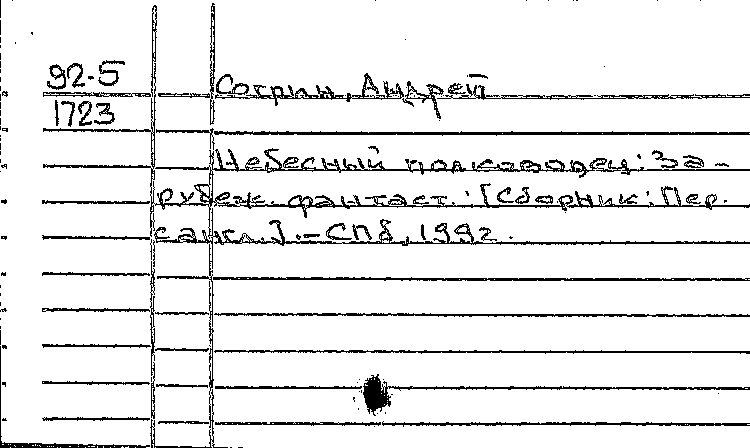 92-5
1723
Согрин, Андрей
Небесный полководец: За-
рубеж. фантаст.: [Сборник: Пер.
с англ.]. - СПб, 1992.